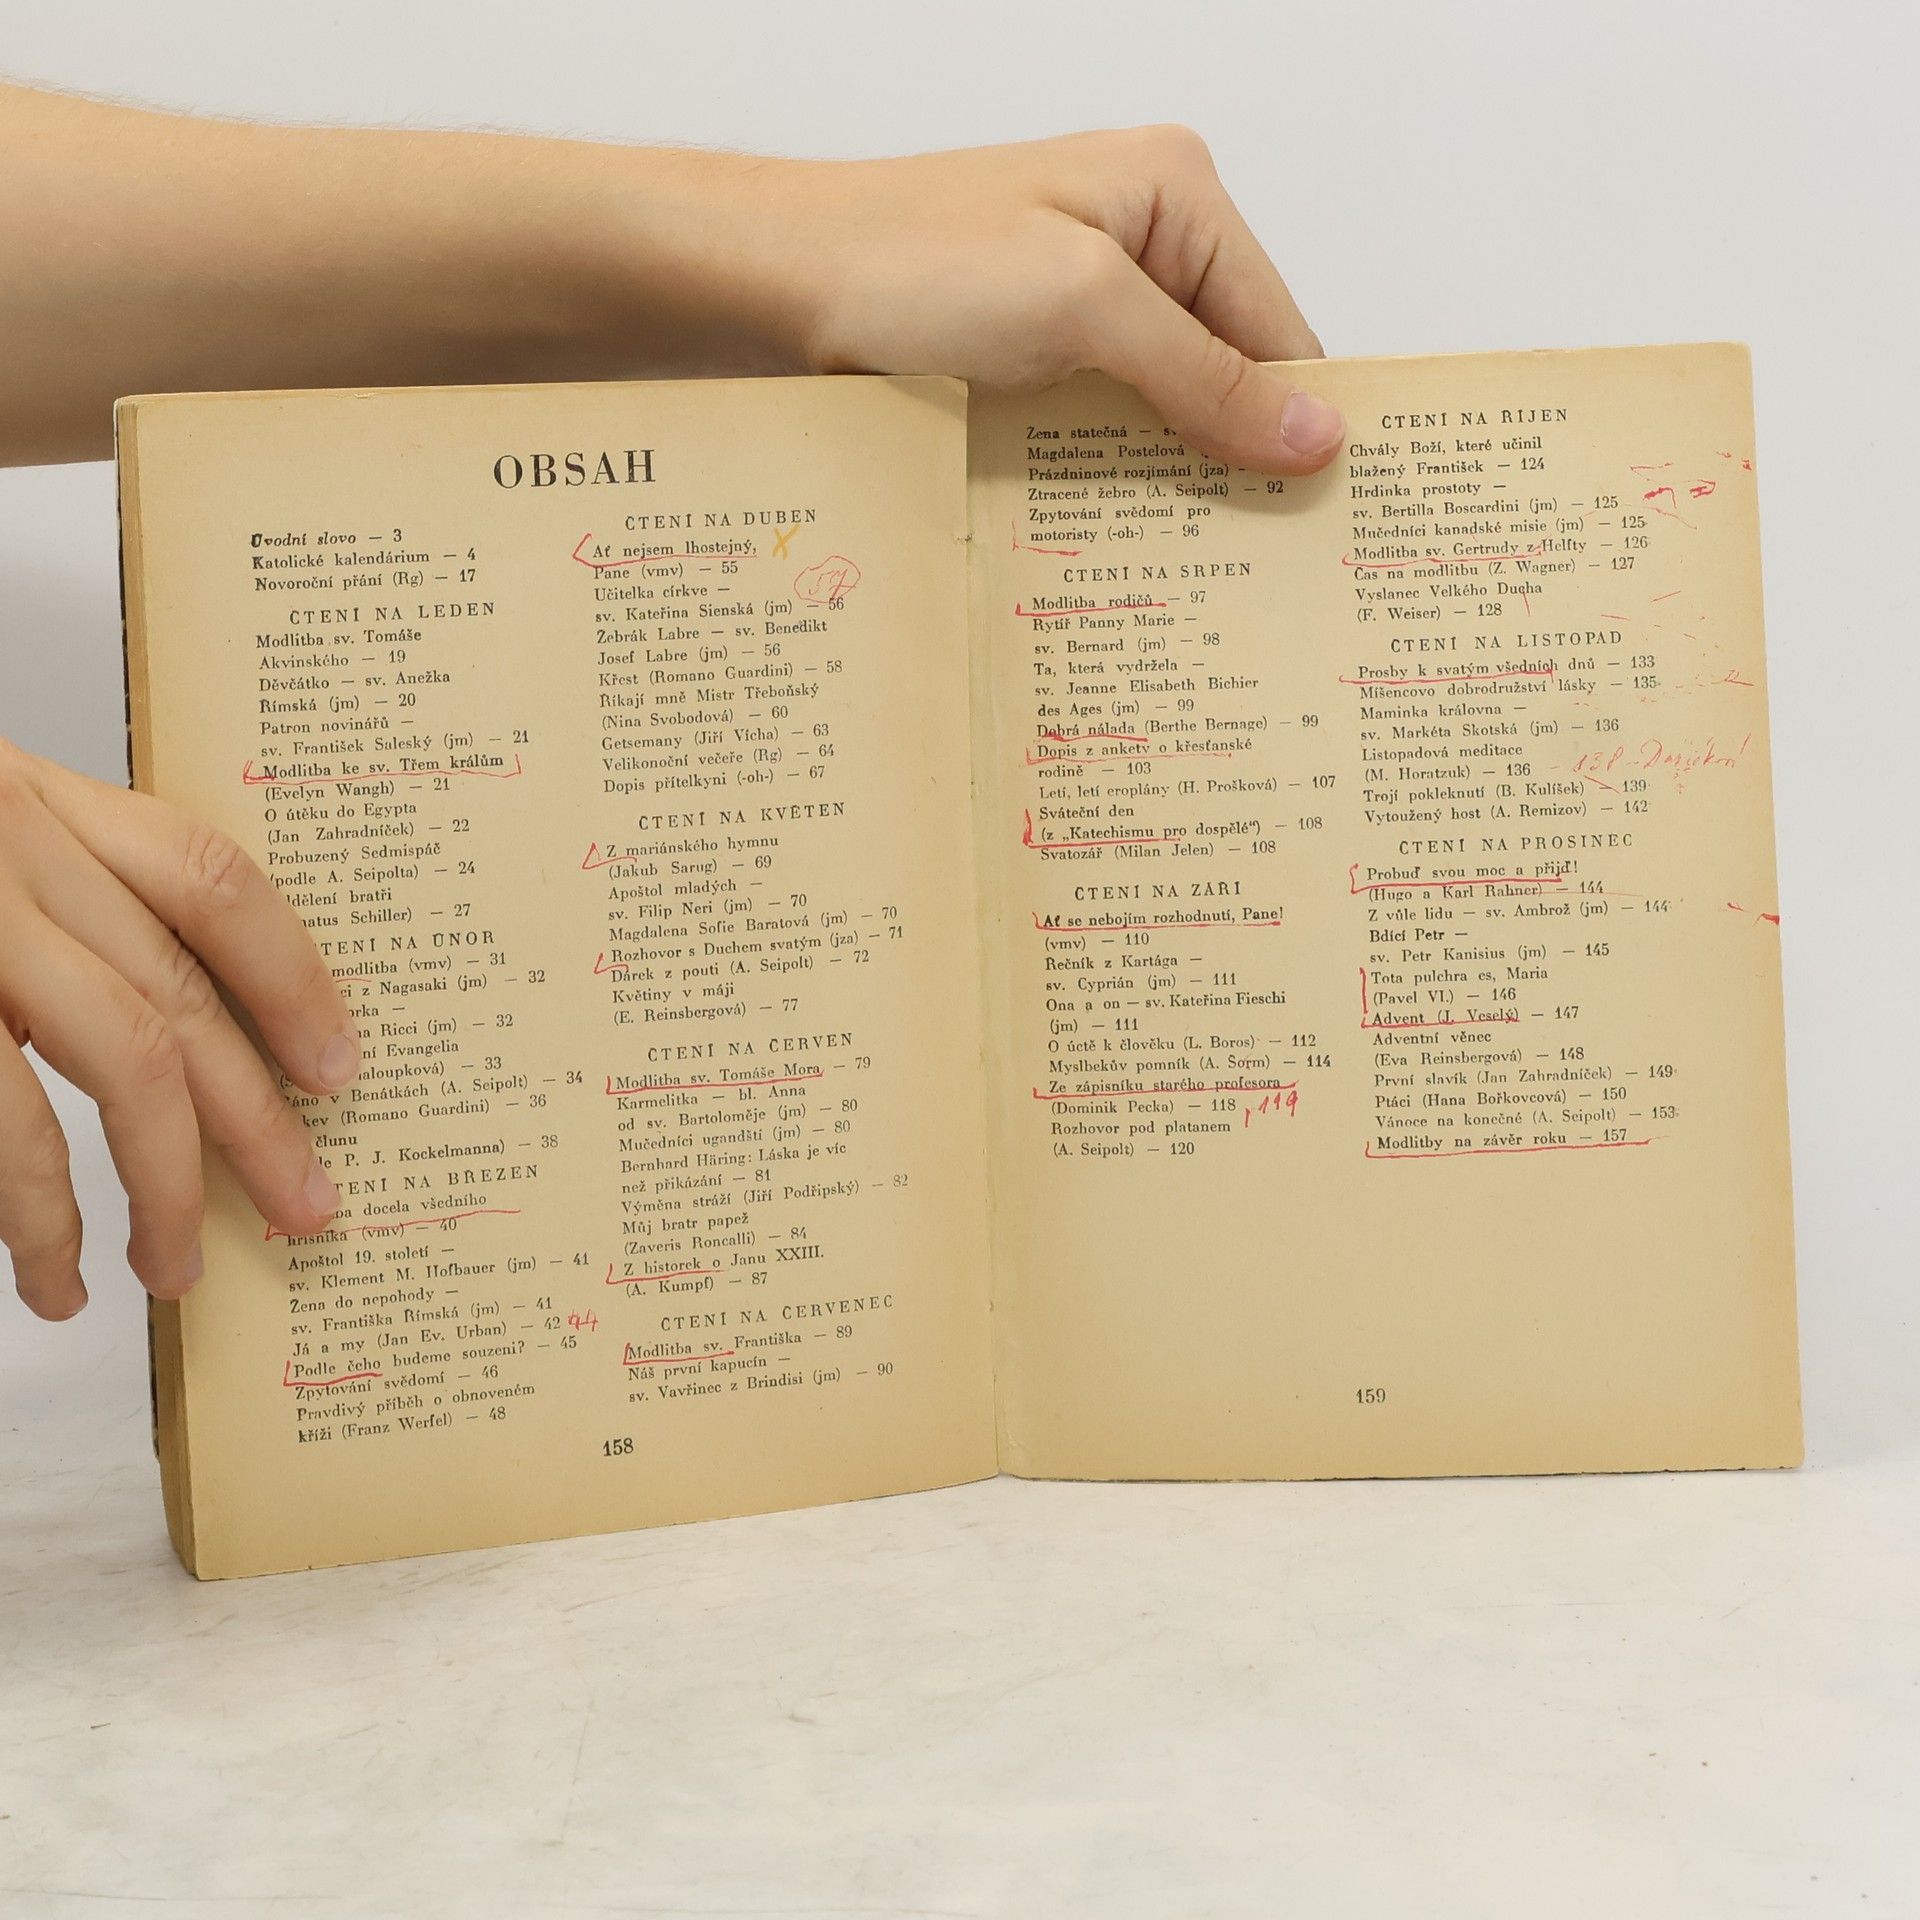 OBSAH
Úvodní slovo — 3
Katolické kalendárium — 4
Novoroční přání (Rg) — 17
ČTENÍ NA LEDEN
Modlitba sv. Tomáše
Akvinského — 19
Děvčátko — sv. Anežka
Římská (jm) — 20
Patron novinářů —
sv. František Saleský (jm) — 21
Modlitba ke sv. Třem králům
(Evelyn Wangh) — 21
O útěku do Egypta
(Jan Zahradníček) — 22
Probuzený Sedmispáč
(podle A. Seipolta) — 24
ldělení bratři
natus Schiller) — 27
TENÍ NA ÚNOR
modlitba (vmv) — 31
ci z Nagasaki (jm) — 32
orka —
na Ricci (jm) — 32
ní Evangelia
aloupková) — 33
áno v Benátkách (A. Seipolt) — 34
kev (Romano Guardini) — 36
člunu
le P. J. Kockelmanna) — 38
TENÍ NA BŘEZEN
ba docela všedního
hříšníka (vmv) — 40
Apoštol 19. století —
sv. Klement M. Hofbauer (jm) — 41
Žena do nepohody —
sv. Františka Římská (jm) — 41
Já a my (Jan Ev. Urban) — 42 44
Podle čeho budeme souzeni? — 45
Zpytování svědomí — 46
Pravdivý příběh o obnoveném
kříži (Franz Werfel) — 48
ČTENÍ NA DUBEN
Ať nejsem lhostejný, X
Pane (vmv) — 55
Učitelka církve —
sv. Kateřina Sienská (jm) — 56
Žebrák Labre — sv. Benedikt
Josef Labre (jm) — 56
Křest (Romano Guardini) — 58
Říkají mně Mistr Třeboňský
(Nina Svobodová) — 60
Getsemany (Jiří Vícha) — 63
Velikonoční večeře (Rg) — 64
Dopis přítelkyni (-oh-) — 67
ČTENÍ NA KVĚTEN
Z mariánského hymnu
(Jakub Sarug) — 69
Apoštol mladých —
sv. Filip Neri (jm) — 70
Magdalena Sofie Baratová (jm) — 70
Rozhovor s Duchem svatým (jza) — 71
Dárek z pouti (A. Seipolt) — 72
Květiny v máji
(E. Reinsbergová) — 77
ČTENÍ NA ČERVEN
Modlitba sv. Tomáše Mora — 79
Karmelitka — bl. Anna
od sv. Bartoloměje (jm) — 80
Mučedníci ugandští (jm) — 80
Bernhard Häring: Láska je víc
než přikázání — 81
Výměna stráží (Jiří Podřipský) — 82
Můj bratr papež
(Zaveris Roncalli) — 84
Z historek o Janu XXIII.
(A. Kumpf) — 87
ČTENÍ NA ČERVENEC
Modlitba sv. Františka — 89
Náš první kapucín —
sv. Vavřinec z Brindisi (jm) — 90
158
Žena statečná —
Magdalena Postelová
Prázdninové rozjímání (jza) —
Ztracené žebro (A. Seipolt) — 92
Zpytování svědomí pro
motoristy (-oh-) — 96
ČTENÍ NA SRPEN
Modlitba rodičů — 97
Rytíř Panny Marie —
sv. Bernard (jm) — 98
Ta, která vydržela —
sv. Jeanne Elisabeth Bichier
des Ages (jm) — 99
Dobrá nálada (Berthe Bernage) — 99
Dopis z ankety o křesťanské
rodině — 103
Letí, letí eroplány (H. Prošková) — 107
Sváteční den
(z „Katechismu pro dospělé“) — 108
Svatozář (Milan Jelen) — 108
ČTENÍ NA ZÁŘÍ
Ať se nebojím rozhodnutí, Pane!
(vmv) — 110
Řečník z Kartága —
sv. Cyprián (jm) — 111
Ona a on — sv. Kateřina Fieschi
(jm) — 111
O úctě k člověku (L. Boros) — 112
Myslbekův pomník (A. Šorm) — 114
Ze zápisníku starého profesora
(Dominik Pecka) — 118 , 119
Rozhovor pod platanem
(A. Seipolt) — 120
ČTENÍ NA ŘÍJEN
Chvály Boží, které učinil
blažený František — 124
Hrdinka prostoty —
sv. Bertilla Boscardini (jm) — 125
Mučedníci kanadské misie (jm) — 125
Modlitba sv. Gertrudy z Helfty — 126
Čas na modlitbu (Z. Wagner) — 127
Vyslanec Velkého Ducha
(F. Weiser) — 128
ČTENÍ NA LISTOPAD
Prosby k svatým všedních dnů — 133
Míšencovo dobrodružství lásky — 135
Maminka královna —
sv. Markéta Skotská (jm) — 136
Listopadová meditace
(M. Horatzuk) — 136 - 138
Trojí pokleknutí (B. Kulíšek) — 139
Vytoužený host (A. Remizov) — 142
ČTENÍ NA PROSINEC
Probuď svou moc a přijď!
(Hugo a Karl Rahner) — 144
Z vůle lidu — sv. Ambrož (jm) — 144
Bdící Petr —
sv. Petr Kanisius (jm) — 145
Tota pulchra es, Maria
(Pavel VI.) — 146
Advent (J. Veselý) — 147
Adventní věnec
(Eva Reinsbergová) — 148
První slavík (Jan Zahradníček) — 149
Ptáci (Hana Bořkovcová) — 150
Vánoce na konečné (A. Seipolt) — 153
Modlitby na závěr roku — 157
159